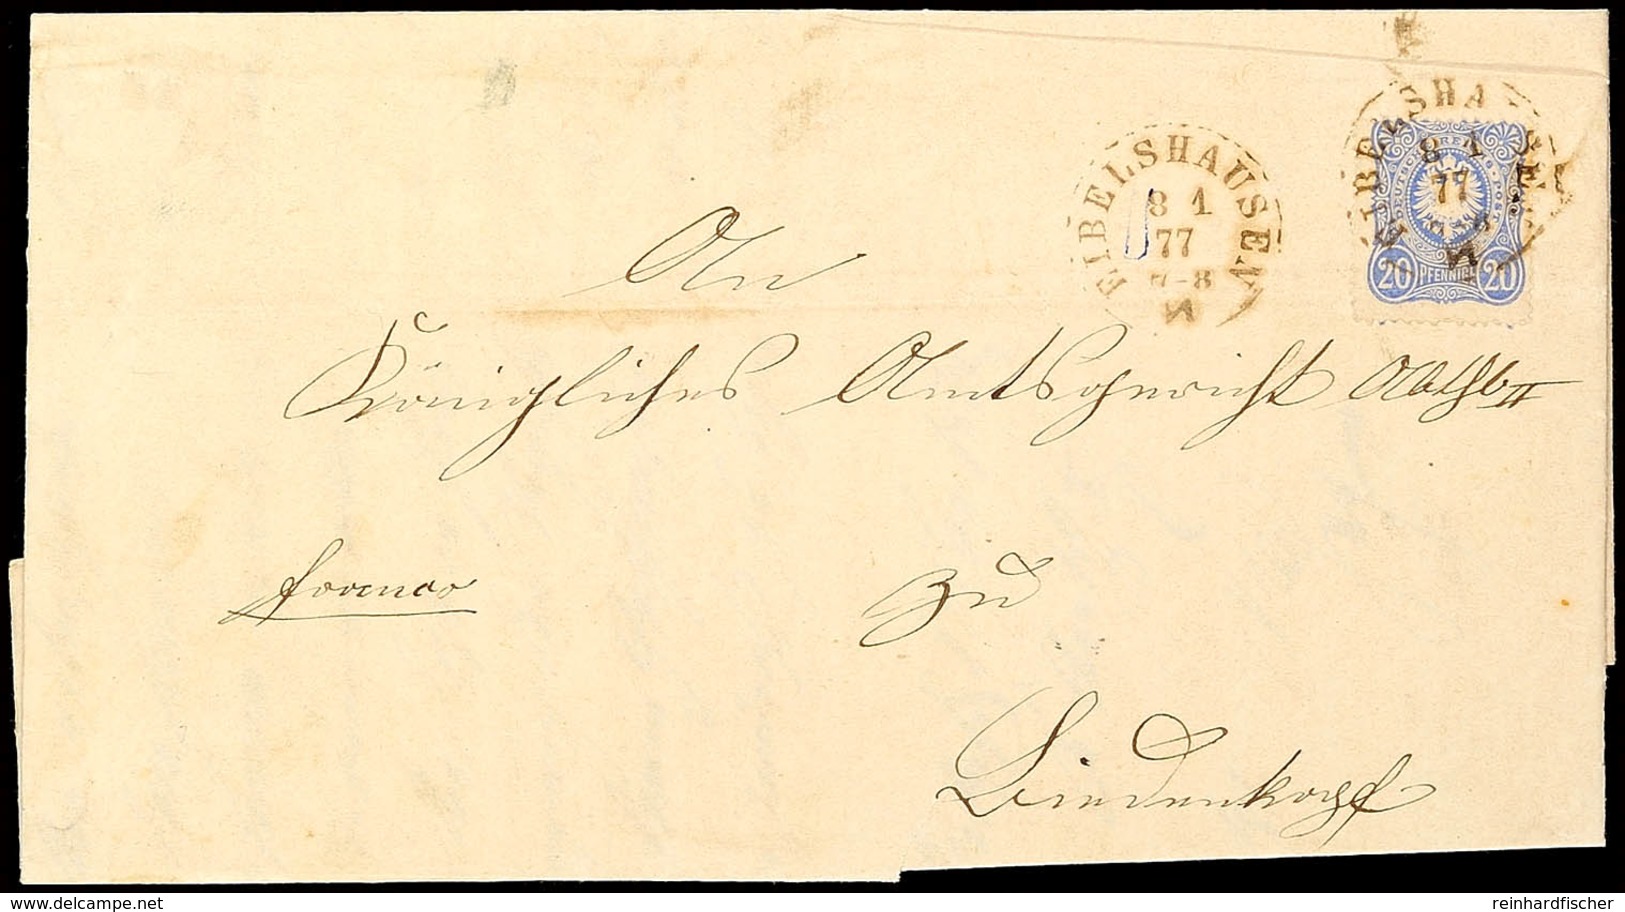 EIBELSHAUSEN
8 1
77
7-8
N
EIBELSHAUSEN
8 1
77
N
DEUTSCHE REICHS-POST
20 PFENNIG 20
An
Königliches Amtsgericht Abthl II
franco
zu
Biedenkopf
delcampe.net
reinhardfischer